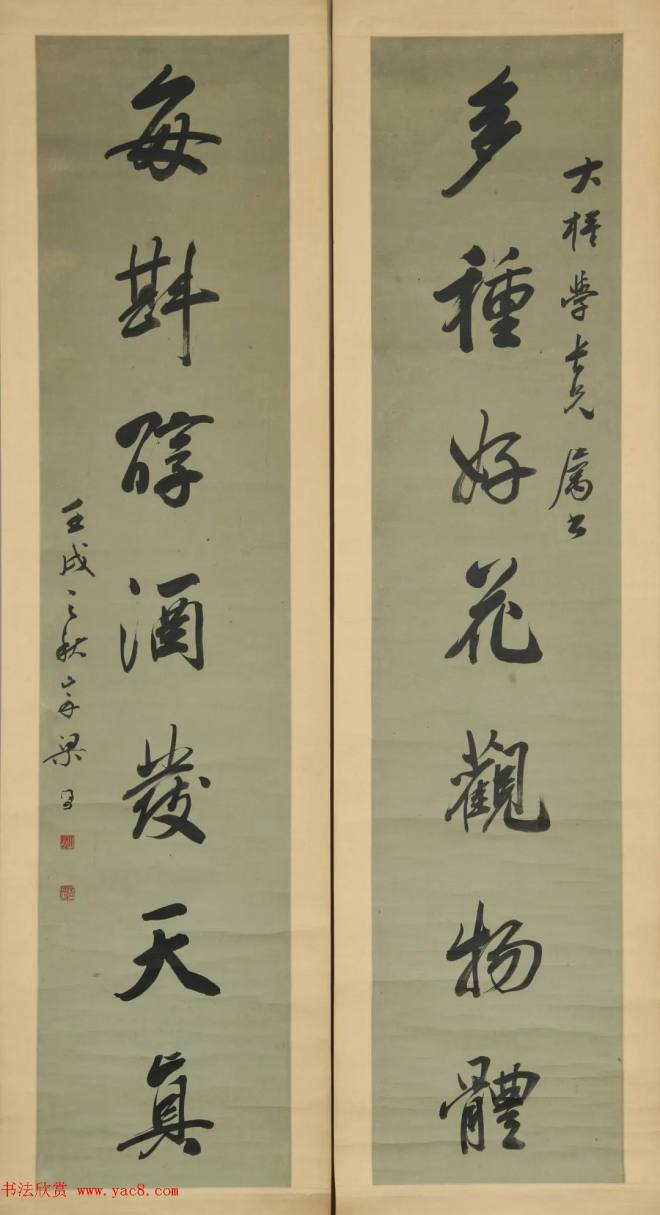 大 學士兄屬書
多種好花觀物體
每斟醇酒發天真
壬戌之秋 宗梁
书法欣赏 www.yac8.com